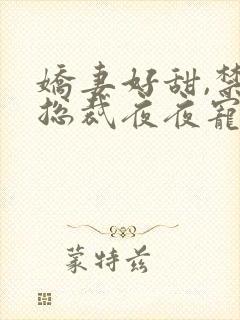 嬌妻好甜,禁
總裁夜夜寵
蒙特兹